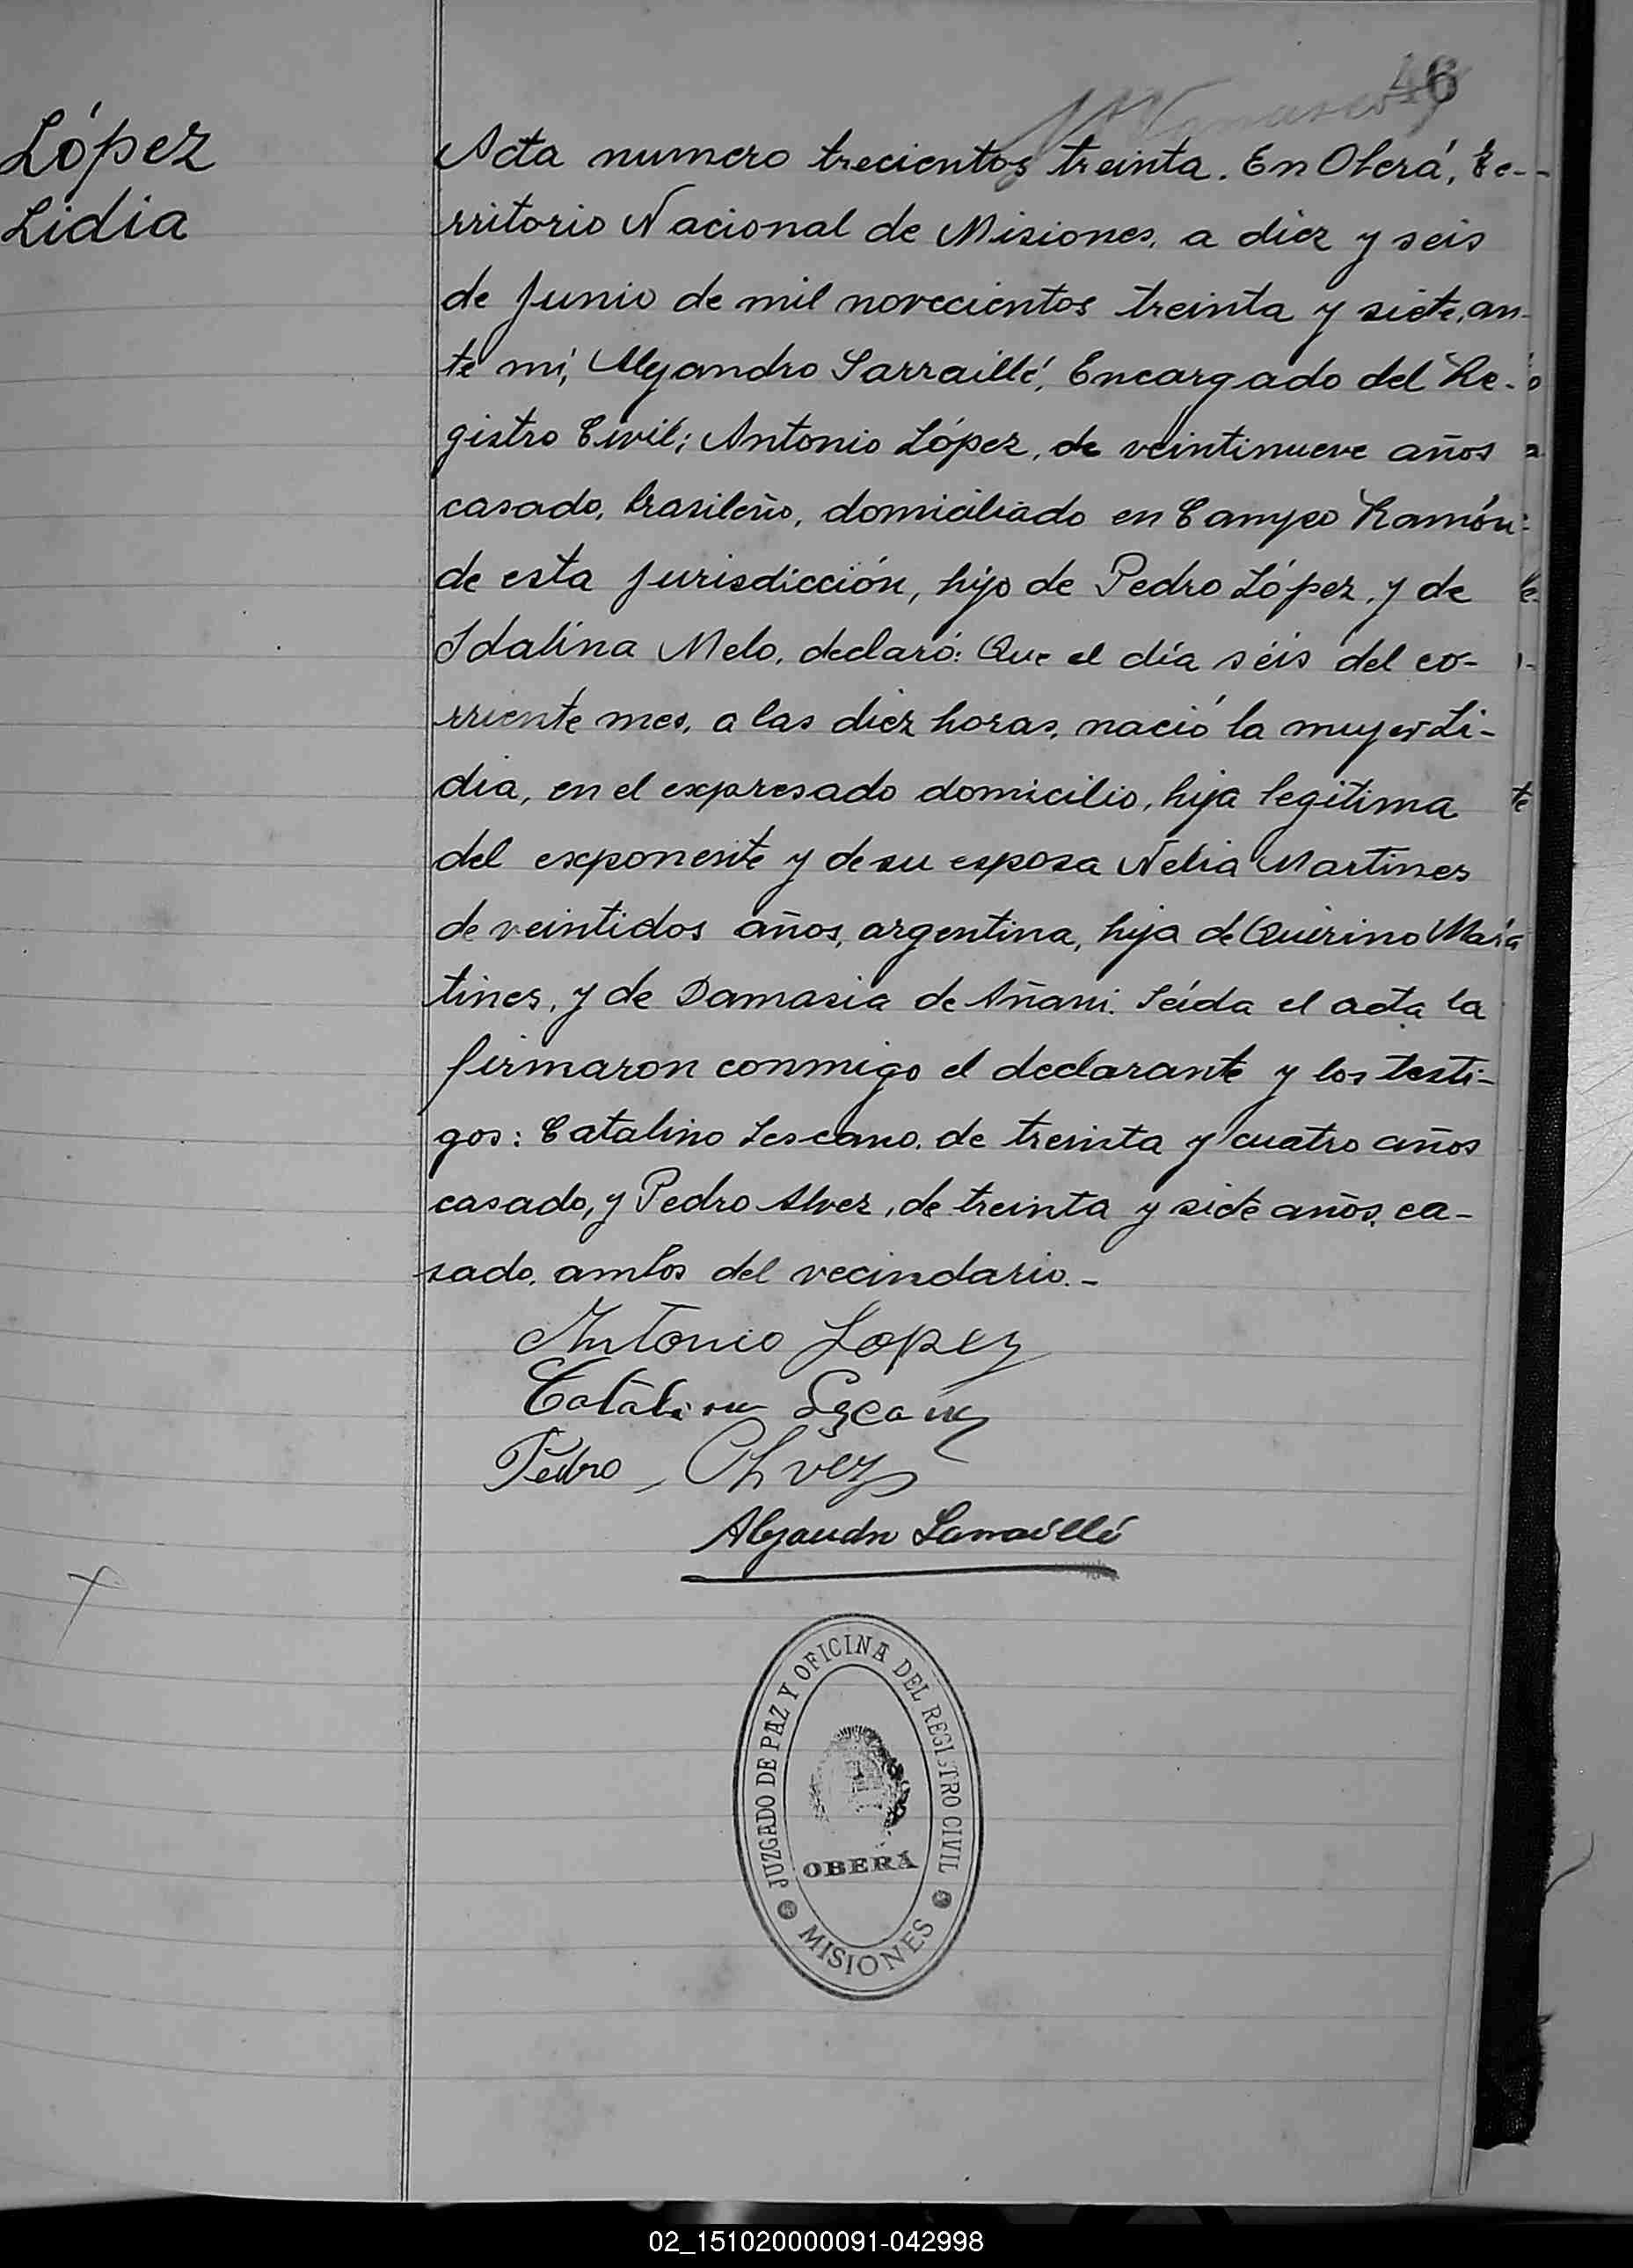 46
López
Lidia
Acta numero trecientos treinta. En Oberá, Te-
rritorio Nacional de Misiones, a diez y seis
de Junio de mil novecientos treinta y siete, an-
te mí, Alejandro Sarraillé, Encargado del Re-
gistro Civil; Antonio López, de veintinueve años
casado, brasileño, domiciliado en Campo Ramón
de esta jurisdicción, hijo de Pedro López, y de
Idalina Melo, declaró: Que el día séis del co-
rriente mes, a las diez horas, nació la mujer Li-
dia, en el expresado domicilio, hija legitima
del exponente y de su esposa Nelia Martines
de veintidos años, argentina, hija de Quirino Mar
tines, y de Damasia de Añani. Leída el acta la
firmaron conmigo el declarante y los testi-
gos: Catalino Lescano, de treinta y cuatro años
casado, y Pedro Alvez, de treinta y siete años, ca-
sado, ambos del vecindario.-
Antonio Lopez
Catalino Lescano
Pedro Alvez
Alejandro Sarraillé
JUZGADO DE PAZ Y OFICINA DEL REGISTRO CIVIL
OBERÁ
MISIONES
02_151020000091-042998